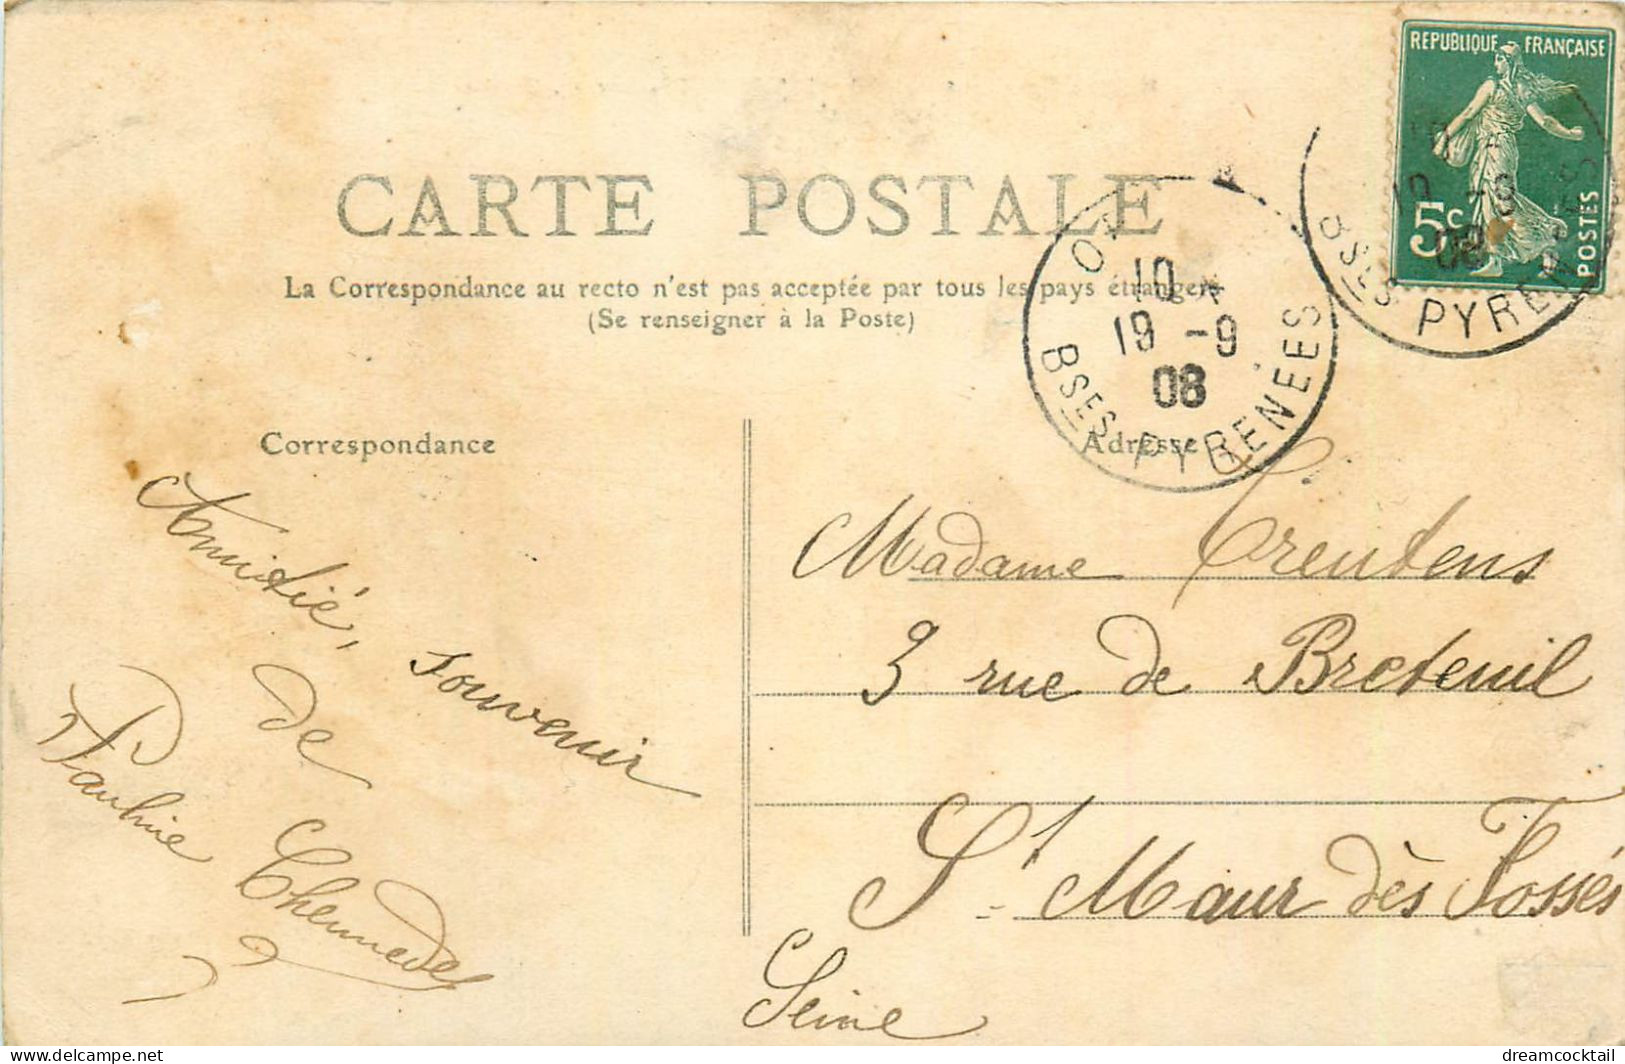 REPUBLIQUE FRANÇAISE
5c POSTES
CARTE POSTALE
La Correspondance au recto n'est pas acceptée par tous les pays étrangers
(Se renseigner à la Poste)
10
19 -9
08
BSES PYRENEES
BSES PYRENEES
Correspondance
Adresse
Amitié, souvenir
de
Pauline
Madame
3 rue de Breteuil
St Maur dès Fossés
Seine
dreamcocktail